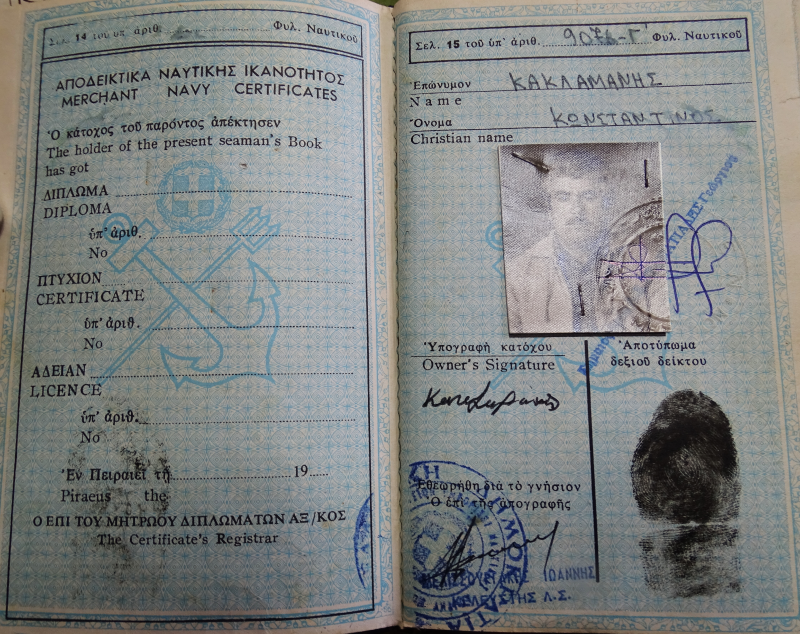 Σελ. 14 τοῦ ὑπ' ἀριθ. Φυλ. Ναυτικοῦ
ΑΠΟΔΕΙΚΤΙΚΑ ΝΑΥΤΙΚΗΣ ΙΚΑΝΟΤΗΤΟΣ
MERCHANT NAVY CERTIFICATES
Ὁ κάτοχος τοῦ παρόντος ἀπέκτησεν
The holder of the present seaman's Book
has got
ΔΙΠΛΩΜΑ
DIPLOMA
ὑπ' ἀριθ.
No
ΠΤΥΧΙΟΝ
CERTIFICATE
ὑπ' ἀριθ.
No
ΑΔΕΙΑΝ
LICENCE
ὑπ' ἀριθ.
No
Ἐν Πειραιεῖ τῇ 19
Piraeus the
Ο ΕΠΙ ΤΟΥ ΜΗΤΡΩΟΥ ΔΙΠΛΩΜΑΤΩΝ ΑΞ/ΚΟΣ
The Certificate's Registrar
Σελ. 15 τοῦ ὑπ' ἀριθ. 9076-Γ' Φυλ. Ναυτικοῦ
Ἐπώνυμον ΚΑΚΛΑΜΑΝΗΣ
Name
Ὄνομα ΚΩΝΣΤΑΝΤΙΝΟΣ
Christian name
Γεώργιος
Ὑπογραφὴ κατόχου
Owner's Signature
Ἀποτύπωμα
δεξιοῦ δείκτου
Ἐθεωρήθη διὰ τὸ γνήσιον
Ὁ ἐπὶ τῆς ἀπογραφῆς
ΙΩΑΝΝΗΣ
ΚΕΛΕΥΣΤΗΣ Λ.Σ.